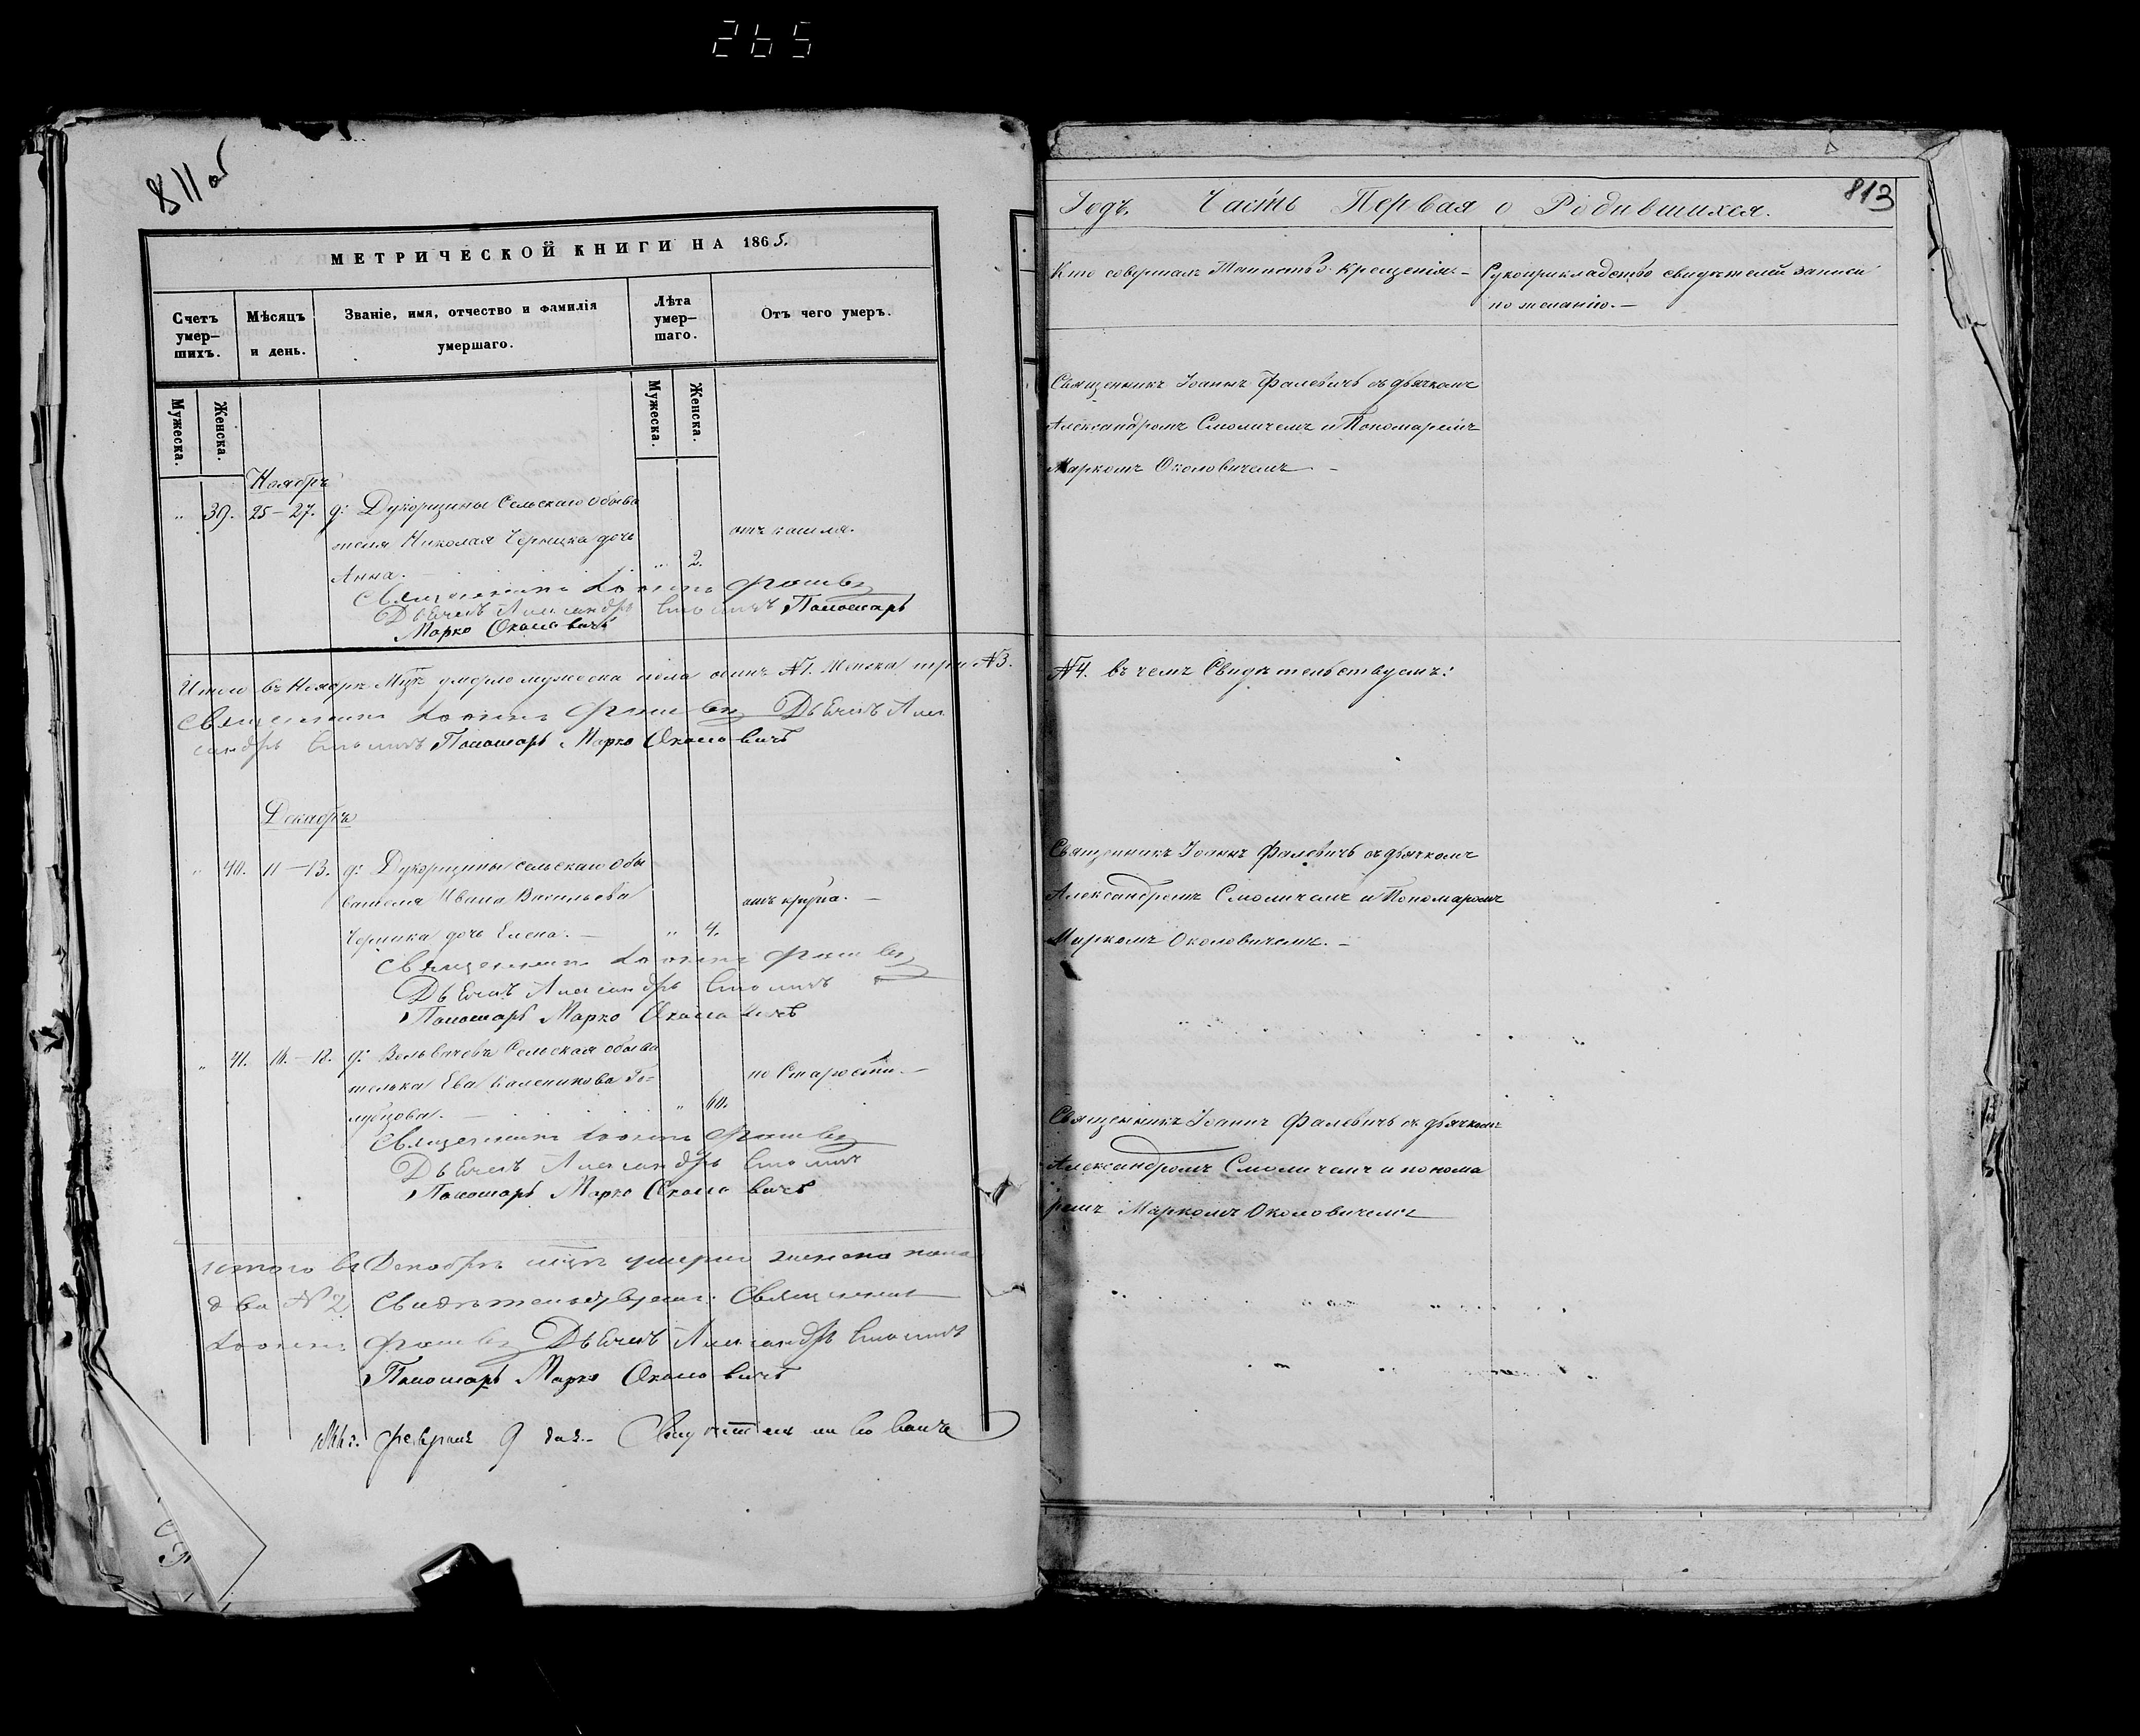 265
811 об
МЕТРИЧЕСКОЙ КНИГИ НА 1865.
Счетъ умер-шихъ.
Мѣсяцъ и день.
Званіе, имя, отчество и фамилія умершаго.
Лѣта умер-шаго.
Отъ чего умеръ.
Мужеска.
Женска.
Мужеска.
Женска.
Ноябрь
" 39. 25-27. д: Дукорщины Сельскаго обыва
теля Николая Черницка дочь отъ кашля.
Анна. " 2.
Священникъ Іоаннъ Фалевич
Дьячекъ Александръ Смоличъ Пономарь
Марко Околовичъ
Итого въ Ноябрѣ Мцѣ умерло мужеска пола одинъ №1. Женска три №3.
Священникъ Іоаннъ Фалевич Дьячекъ Алек
сандръ Смоличъ Пономарь Марко Околовичъ
Декабрь
" 40. 11-13. д: Дукорщины сельскаго обы
вателя Ивана Васильева отъ крупа. —
Черника дочь Елена. — " 4.
Священникъ Іоаннъ Фалевич
Дьячекъ Александръ Смоличъ
Пономарь Марко Околовичъ
" 41. 16.-18. д: Сельская обыва
телька Ева по Старости. —
" 60.
Священникъ Іоаннъ Фалевич
Дьячекъ Александръ Смоличъ
Пономарь Марко Околовичъ
Итого въ Декабрѣ мцѣ умерло женска пола
два №2 Свидѣтельствуемъ: Священникъ
Іоаннъ Фалевич Дьячекъ Александръ Смоличъ
Пономарь Марко Околовичъ
Февраля 9 дня.
813
Годъ. Часть Первая о Родившихся.
Кто совершалъ Таинство Крещенія. —
Рукоприкладство свидѣтелей записи
по желанію. —
Священникъ Іоаннъ Фалевичъ съ дьячкомъ
Александромъ Смоличемъ и Пономаремъ
Маркомъ Околовичемъ —
№4. въ чемъ Свидѣтельствуемъ:
Священникъ Іоаннъ Фалевичъ съ дьячкомъ
Александромъ Смоличемъ и Пономаромъ
Маркомъ Околовичемъ. —
Священникъ Іоаннъ Фалевичъ съ дьячкомъ
Александромъ Смоличемъ и понома
ремъ Маркомъ Околовичемъ